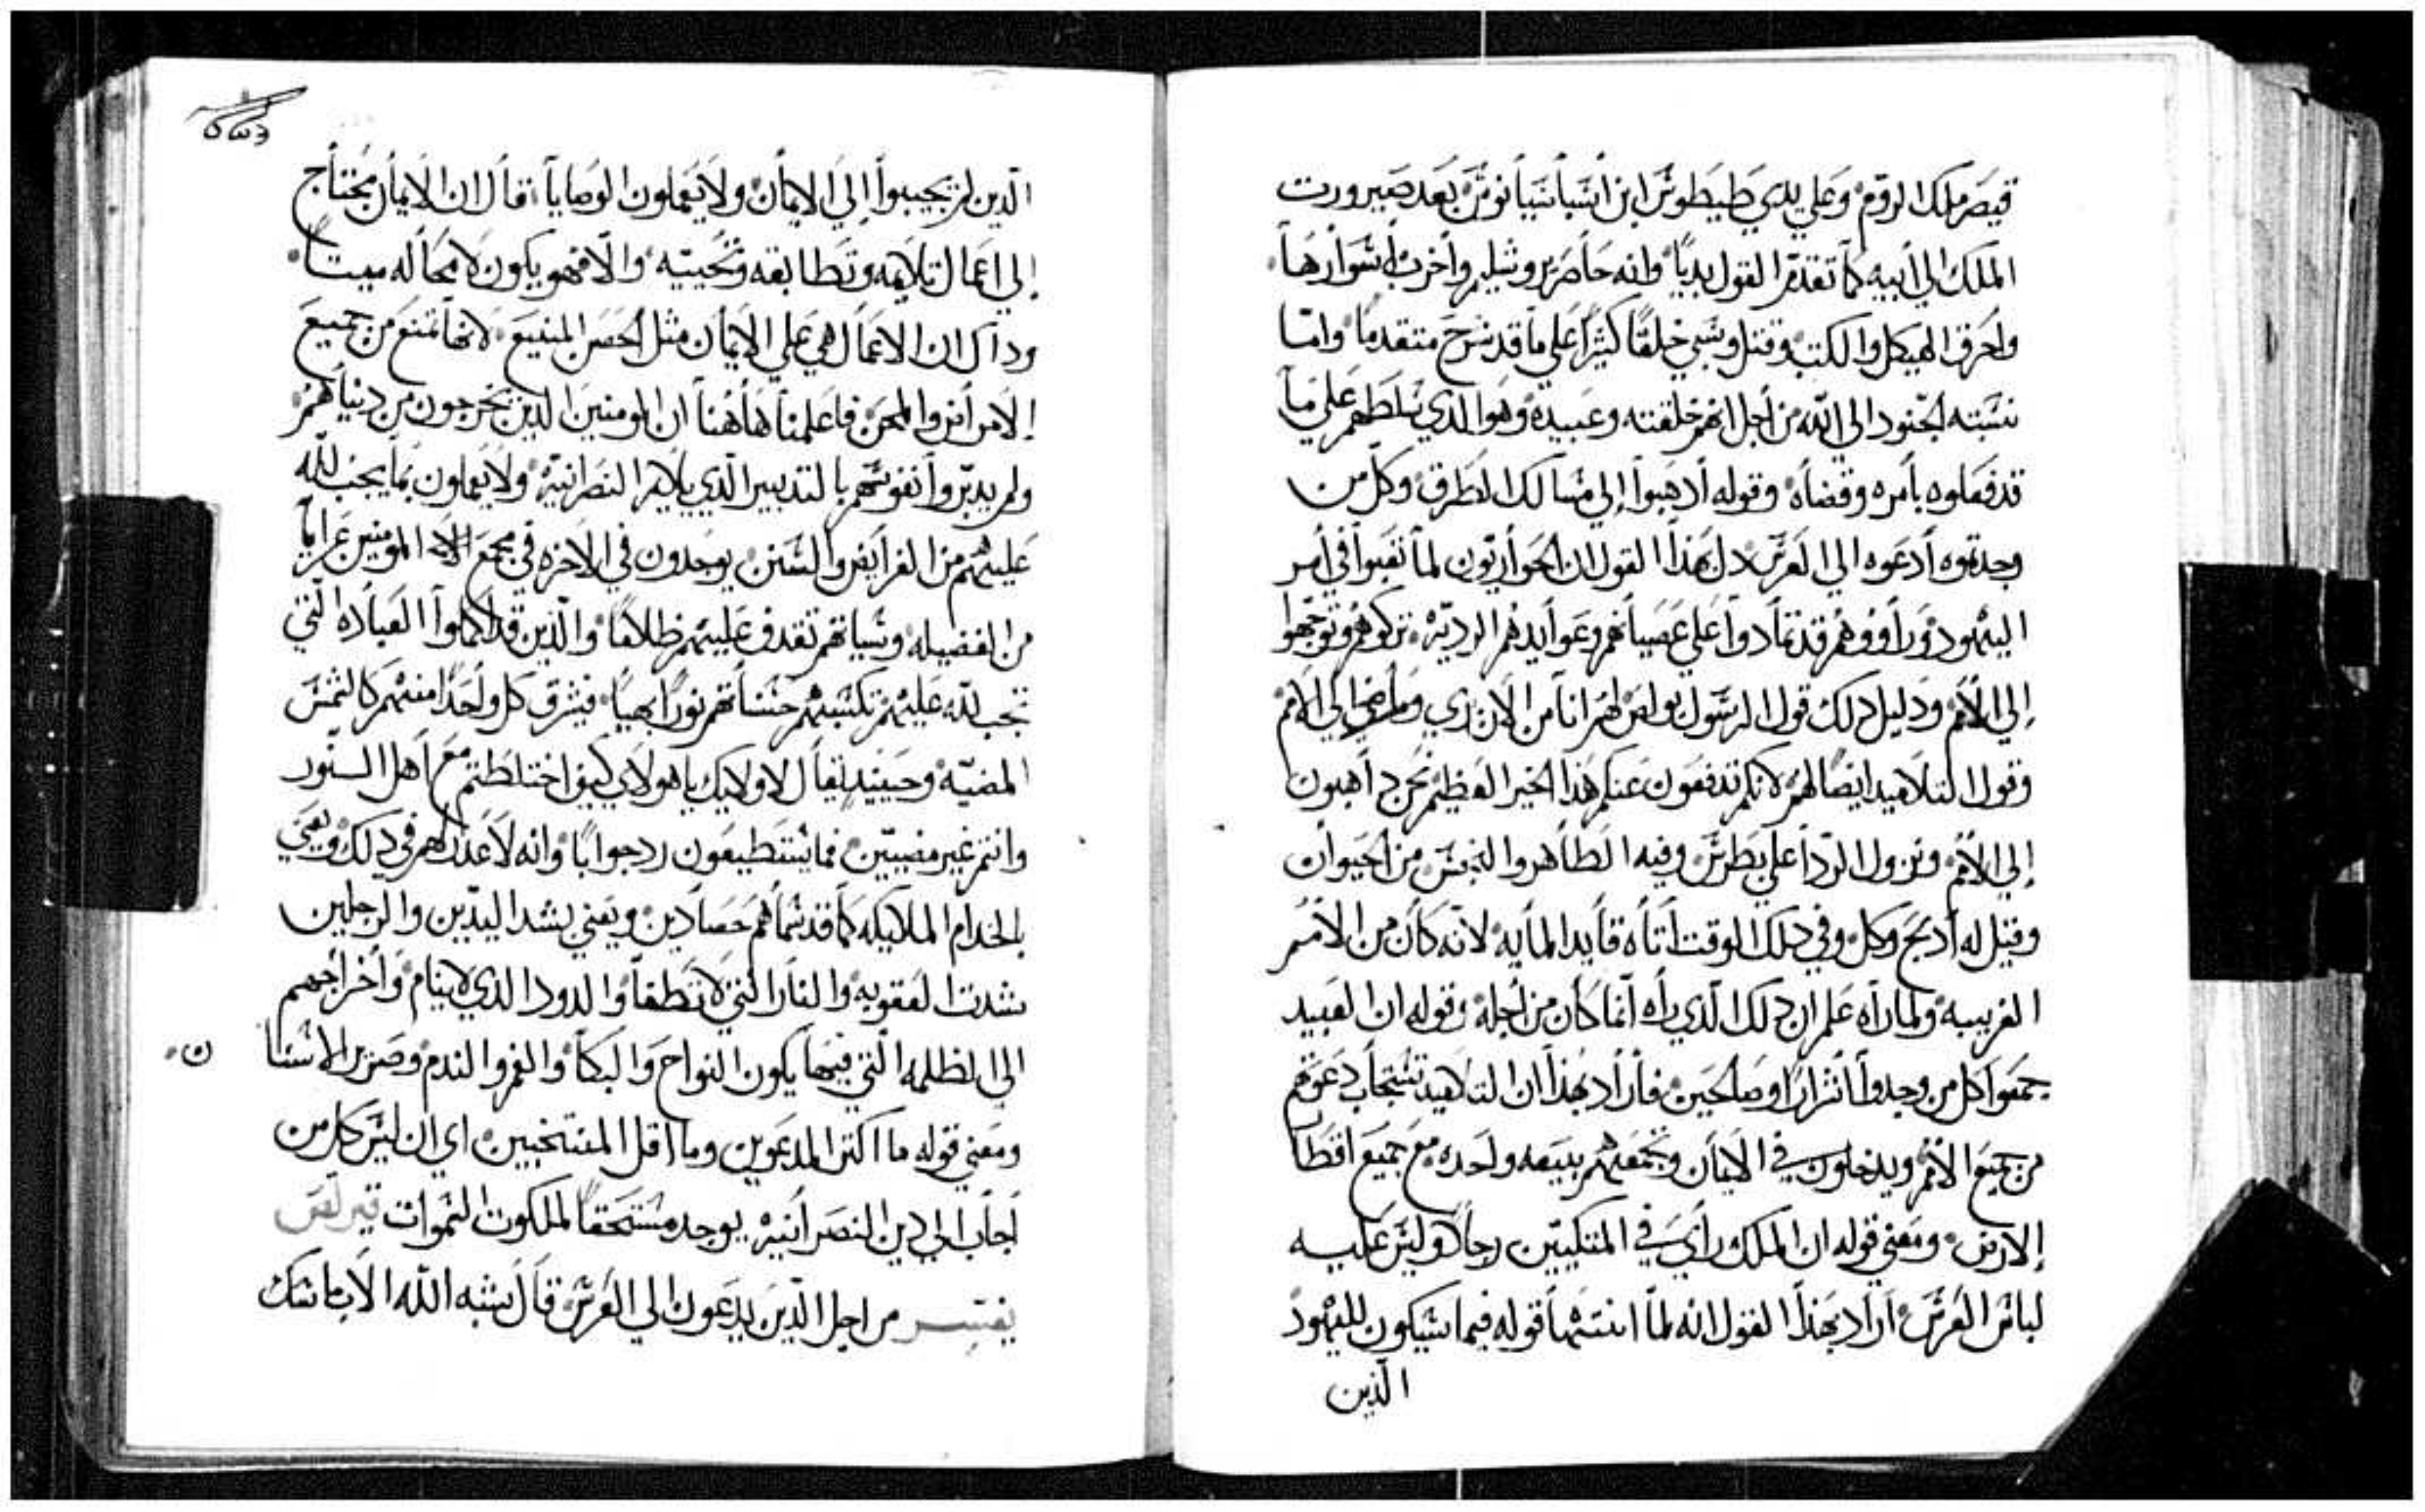 قيصر ملك الروم وعلي يدي طيطوش ابن اشباشيانوش بعد صيرورت
الملك الي أبيه كما تقدم القول بديًا وانه حاصر يروشليم واخرب اشوارها
واحرق الهيكل والكتب وقتل وسبي خلقًا كثيرًا علي ما قد شرح متقدمًا وامّا
نسبته الجنود الي الله من أجل انهم خلقته وعبيده وهو الذي سلطهم علي ما
قد فعلوه بأمره وقضاه وقوله أدهبوا إلي مسالك الطرق وكل من
وجدتموه أدعوه الي العرس دل بهذا القول ان الحواريون لما تعبوا في أمر
اليهود وراووهم قد تمادوا علي عصيانهم وعوايدهم الرديّه تركوهم وتوجهوا
إلي الأمم ودليل دلك قول الرسول بولص لهم انا من الان نري وماضي الي الامم
وقول التلاميد ايضًا لهم لانكم تدفعون عنكم هذا الخير العظيم نحن داهبون
إلي الأمم ونزول الردا علي بطرس وفيه الطاهر والنجس من الحيوان
وقيل له أدبح وكل وفي دلك الوقت اتاه قايد المايه لانه كان من الأمم
الغريبه ولما راه علم ان دلك الذي راه انما كان من أجله وقوله ان العبيد
جمعوا كل من وجدوا اشرارًا وصالحين فأراد بهذا ان التلاميد تستجاب دعوتهم
من جميع الأمم ويدخلون في الايمان وتجمعهم بيعه واحده مع جميع اقطا
الارض ومعني قوله ان الملك رأي في المتكيين رجلاً وليس عليه
لباس العرس اراد بهذا القول انه لما انتهي قوله فيما سيكون لليهود
الذين
٥٥٦
الذين لم يجيبوا إلي الايمان ولا يعملون الوصايا قال ان الايمان محتاج
إلي اعمال تلايمه وتطابقه وتحييه والا فهو يكون لا محاله ميتًا
وداك ان الاعمال هي علي الايمان مثل الحصن المنيع لانها تمنع من جميع
الامراض والمحن فاعلمنا هاهنا ان المومنين الذين يخرجون من دنياهم
ولم يدبّروا نفوسهم بالتدبير الذي يلايم النصرانيّه ولا يعملون بما يجب لله
عليهم من الفرايض والسنن يوجدون في الاخره في مجمع الاله المومنين عرايا
من الفضيله وسياتهم تقدف عليهم ظلامًا والذين قد اكملوا العباده التي
تجب لله عليهم تكسبهم حسناتهم نورًا بهيًا فيشرق كل واحدًا منهم كالشمس
المضيّه وحينيد يقال لاولايك يا هولاي كيف اختلطتم مع اهل السّور
وانتم غير مضيين فما يستطيعون رد جوابًا وانه لا عدر لهم في دلك ويعني
بالخدام الملايكه كما قد سماهم حصادين ويعني بشد اليدين والرجلين
شدت العقوبه والنار التي لا تطفا والدود الذي لا ينام واخراجهم
الي الظلمه التي فيها يكون النواح والبكا والغم والندم وصرير الاسنا ن
ومعني قوله ما اكثر المدعوين وما اقل المنتخبين اي ان ليس كل من
اجاب الي دين النصرانيّه يوجد مستحقًا لملكوت السموات قيرلّص
يفسر من اجل الذين يدعون الي العرس قال يشبه الله الاب ملك